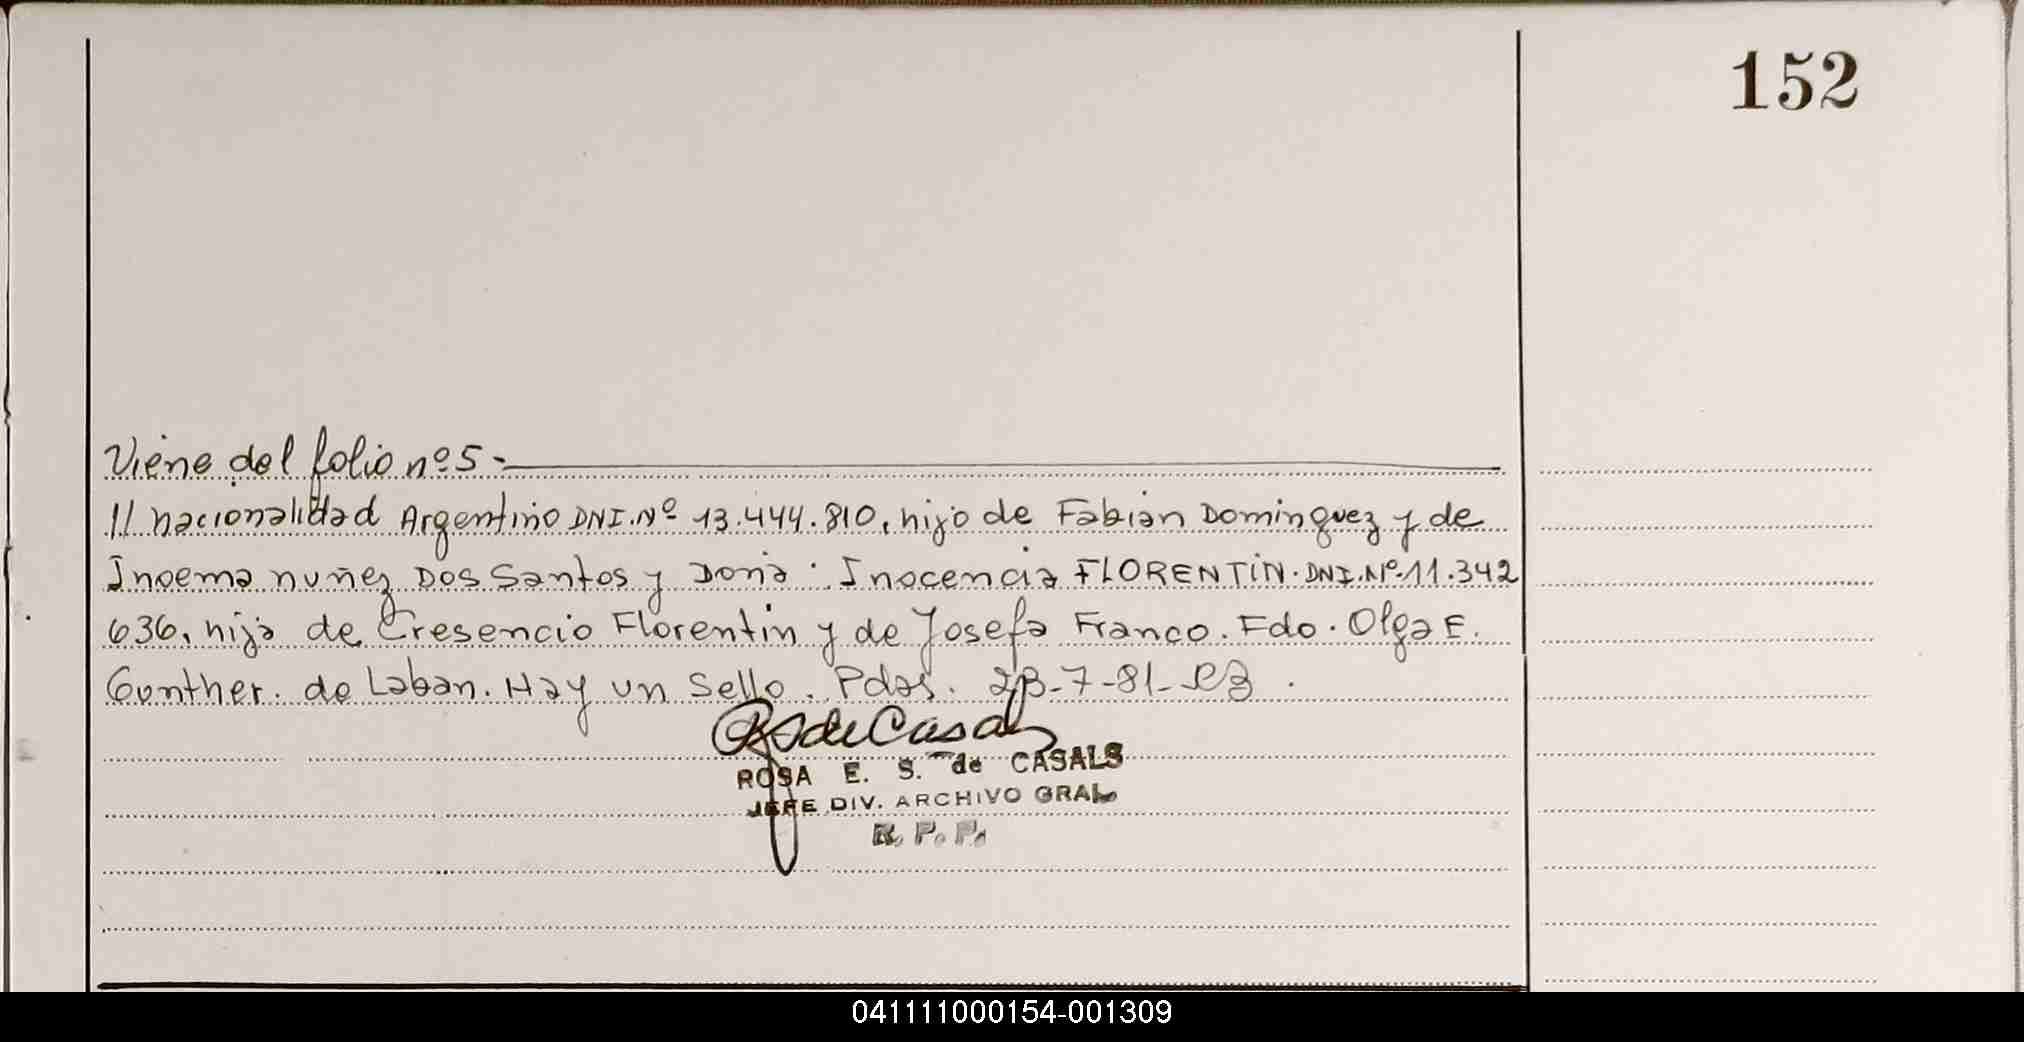 152
Viene del folio nº 5-
// nacionalidad Argentino DNI.Nº 13.444.810, hijo de Fabian Dominguez y de
Inoema nuñez Dos Santos y Doña: Inocencia FLORENTIN. DNI.Nº.11.342
636, hija de Cresencio Florentin y de Josefa Franco. Fdo. Olga E.
Gunther. de Laban. Hay un Sello. Pdas. 28-7-81-
RSdeCasals
ROSA E. S. de CASALS
JEFE DIV. ARCHIVO GRAL
R. P. P.
041111000154-001309